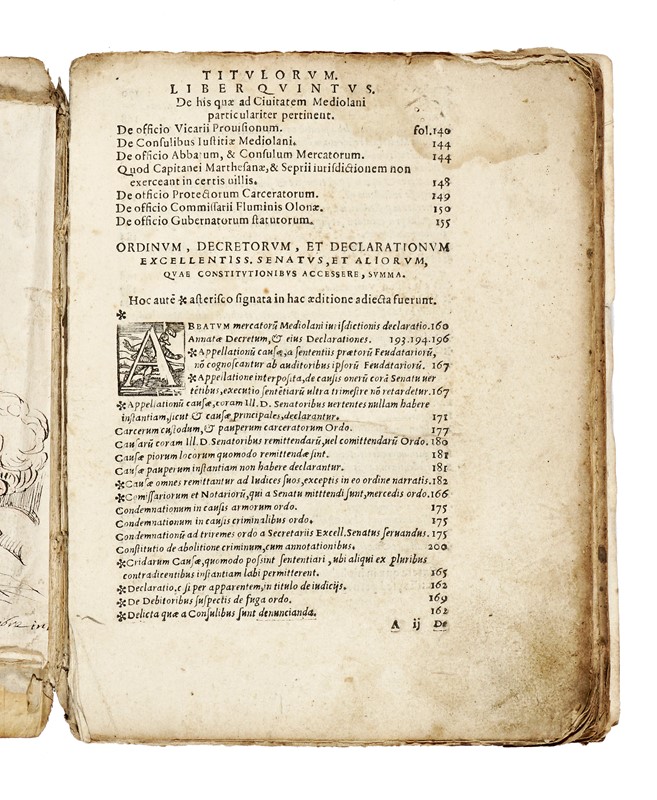 TITVLORVM.
LIBER QVINTVS.
De his quæ ad Ciuitatem Mediolani
particulariter pertinent.
De officio Vicarii Prouisionum. fol.140
De Consulibus Iustitiæ Mediolani. 144
De officio Abbatum, & Consulum Mercatorum. 144
Quod Capitanei Marthesanæ, & Seprii iurisdictionem non
exerceant in certis uillis. 148
De officio Protectorum Carceratorum. 149
De officio Commissarii Fluminis Olonæ. 150
De officio Gubernatorum statutorum. 155
ORDINVM, DECRETORVM, ET DECLARATIONVM
EXCELLENTISS. SENATVS, ET ALIORVM,
QVAE CONSTITVTIONIBVS ACCESSERE, SVMMA.
Hoc autē ✻ asterisco signata in hac æditione adiecta fuerunt.
✻
ABBATVM mercatorū Mediolani iurisdictionis declaratio. 160
Annatæ Decretum, & eius Declarationes. 193.194.196
✻ Appellationū causæ, a sententiis prætorū Feudatariorū,
nō cognoscantur ab auditoribus ipsorū Feudatariorū. 167
✻ Appellatione interposita, de causis onerū corā Senatu uer
tētibus, executio sentētiarū ultra trimestre nō retardetur. 167
✻ Appellationū causæ, coram Ill. D. Senatoribus uertentes nullam habere
instantiam, sicut & causæ principales, declarantur. 171
Carcerum custodum, & pauperum carceratorum Ordo. 177
Causarū coram Ill. D. Senatoribus remittendarū, uel comittendarū Ordo. 180
Causæ piorum locorum quomodo remittendæ sint. 181
Causæ pauperum instantiam non habere declarantur. 181
✻ Causæ omnes remittantur ad Iudices suos, exceptis in eo ordine narratis. 182
✻ Comissariorum et Notariorū, qui a Senatu mitttendi sunt, mercedis ordo. 166
Condemnationum in causis armorum ordo. 175
Condemnationum in causis criminalibus ordo. 175
Condemnationū ad triremes ordo a Secretariis Excell. Senatus seruandus. 175
Constitutio de abolitione criminum, cum annotationibus. 200
✻ Cridarum Causæ, quomodo possint sententiari, ubi aliqui ex pluribus
contradicentibus instantiam labi permitterent. 165
✻ Declaratio, c si per apparentem, in titulo de iudicijs. 162
✻ De Debitoribus suspectis de fuga ordo. 169
✻ Delicta quæ a Consulibus sunt denuncianda. 162
A ij De